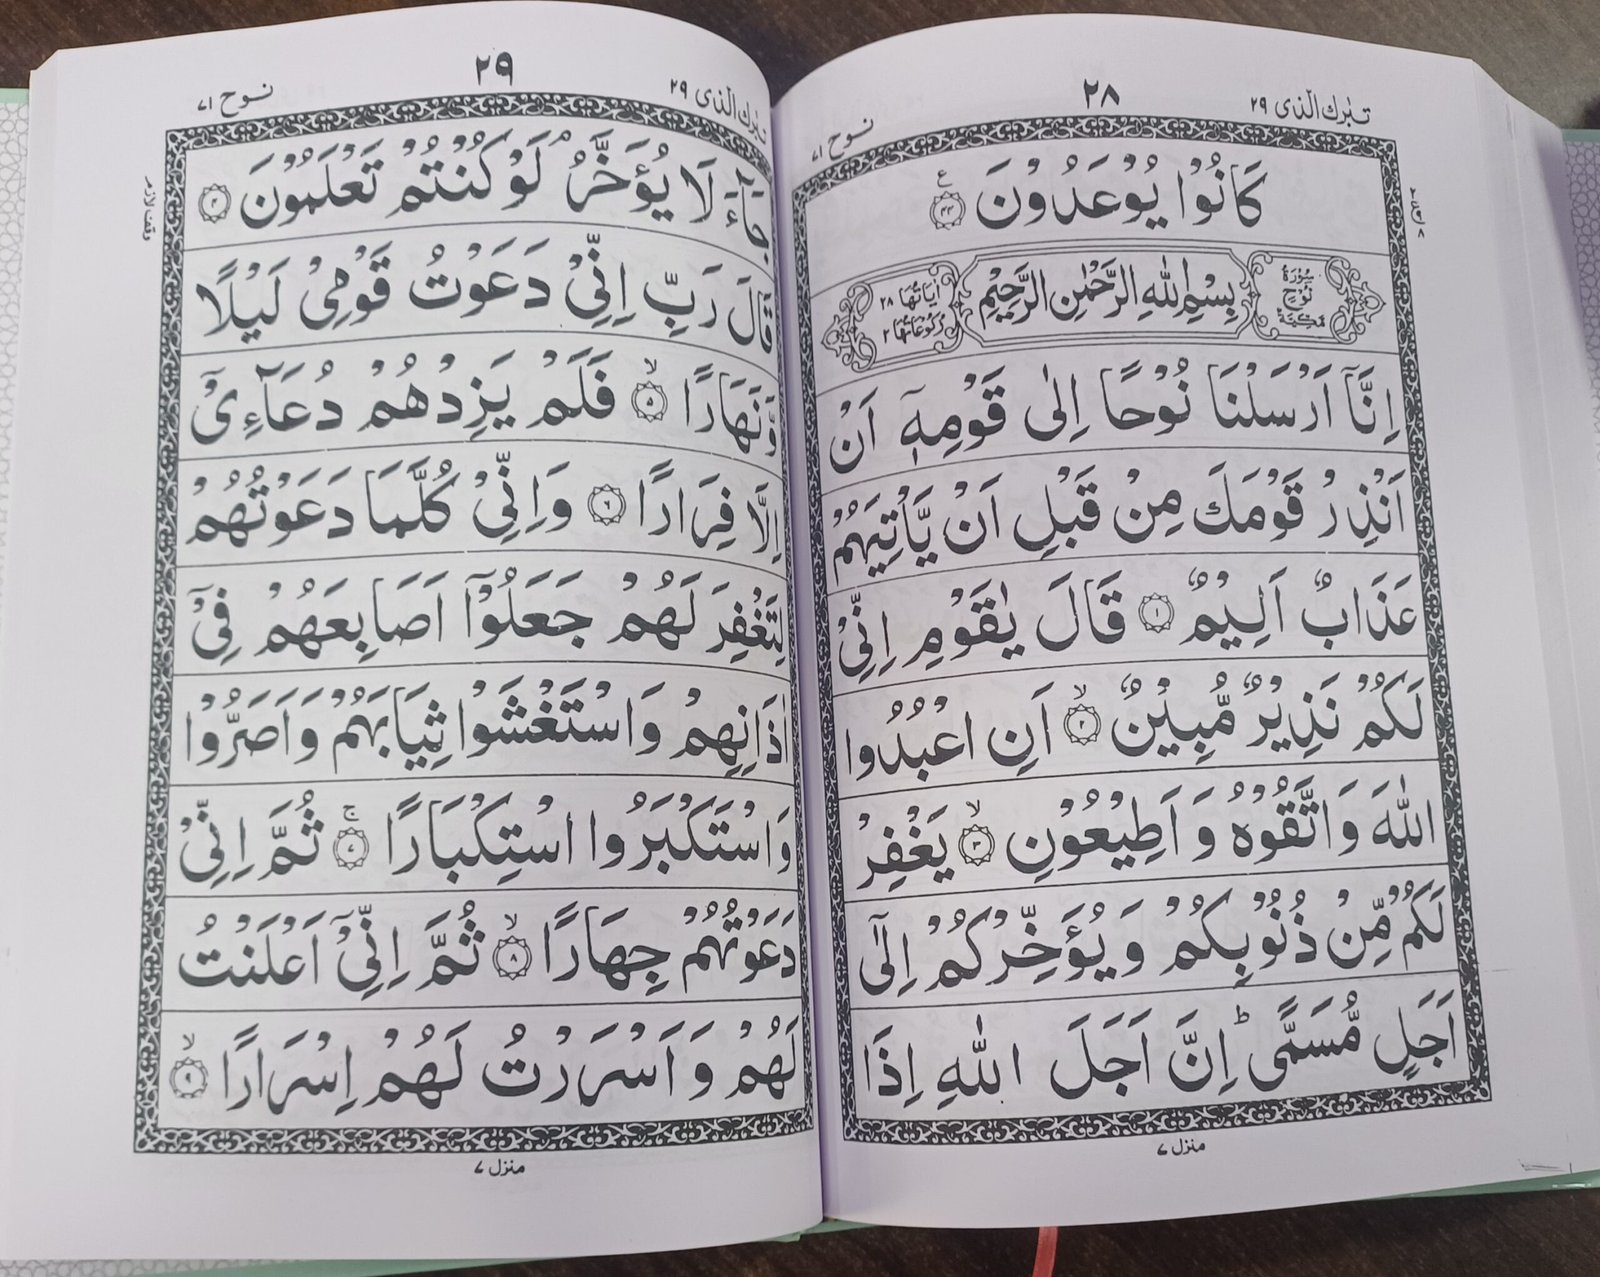 تبٰرك الذی ٢٩
٢٨
نوح ٧١
كَانُوْا يُوْعَدُوْنَ ﴿٤٤﴾ ع
سُوْرَةُ نُوْحٍ مَكِّيَّةٌ
بِسْمِ اللّٰهِ الرَّحْمٰنِ الرَّحِيْمِ
اٰيَاتُهَا ٢٨
رُكُوْعَاتُهَا ٢
اِنَّآ اَرْسَلْنَا نُوْحًا اِلٰى قَوْمِهٖٓ اَنْ
اَنْذِرْ قَوْمَكَ مِنْ قَبْلِ اَنْ يَّاْتِيَهُمْ
عَذَابٌ اَلِيْمٌ ﴿١﴾ قَالَ يٰقَوْمِ اِنِّيْ
لَكُمْ نَذِيْرٌ مُّبِيْنٌ ﴿٢﴾ۙ اَنِ اعْبُدُوا
اللّٰهَ وَاتَّقُوْهُ وَاَطِيْعُوْنِ ﴿٣﴾ۙ يَغْفِرْ
لَكُمْ مِّنْ ذُنُوْبِكُمْ وَيُؤَخِّرْكُمْ اِلٰٓى
اَجَلٍ مُّسَمًّى ؕ اِنَّ اَجَلَ اللّٰهِ اِذَا
منزل ٧
تبٰرك الذی ٢٩
٢٩
نوح ٧١
جَآءَ لَا يُؤَخَّرُ ۘ لَوْ كُنْتُمْ تَعْلَمُوْنَ ﴿٤﴾
وقف لازم
قَالَ رَبِّ اِنِّيْ دَعَوْتُ قَوْمِيْ لَيْلًا
وَّنَهَارًا ﴿٥﴾ۙ فَلَمْ يَزِدْهُمْ دُعَآءِيْٓ
اِلَّا فِرَارًا ﴿٦﴾ وَاِنِّيْ كُلَّمَا دَعَوْتُهُمْ
لِتَغْفِرَ لَهُمْ جَعَلُوْٓا اَصَابِعَهُمْ فِيْٓ
اٰذَانِهِمْ وَاسْتَغْشَوْا ثِيَابَهُمْ وَاَصَرُّوْا
وَاسْتَكْبَرُوا اسْتِكْبَارًا ﴿٧﴾ۚ ثُمَّ اِنِّيْ
دَعَوْتُهُمْ جِهَارًا ﴿٨﴾ۙ ثُمَّ اِنِّيْٓ اَعْلَنْتُ
لَهُمْ وَاَسْرَرْتُ لَهُمْ اِسْرَارًا ﴿٩﴾ۙ
منزل ٧